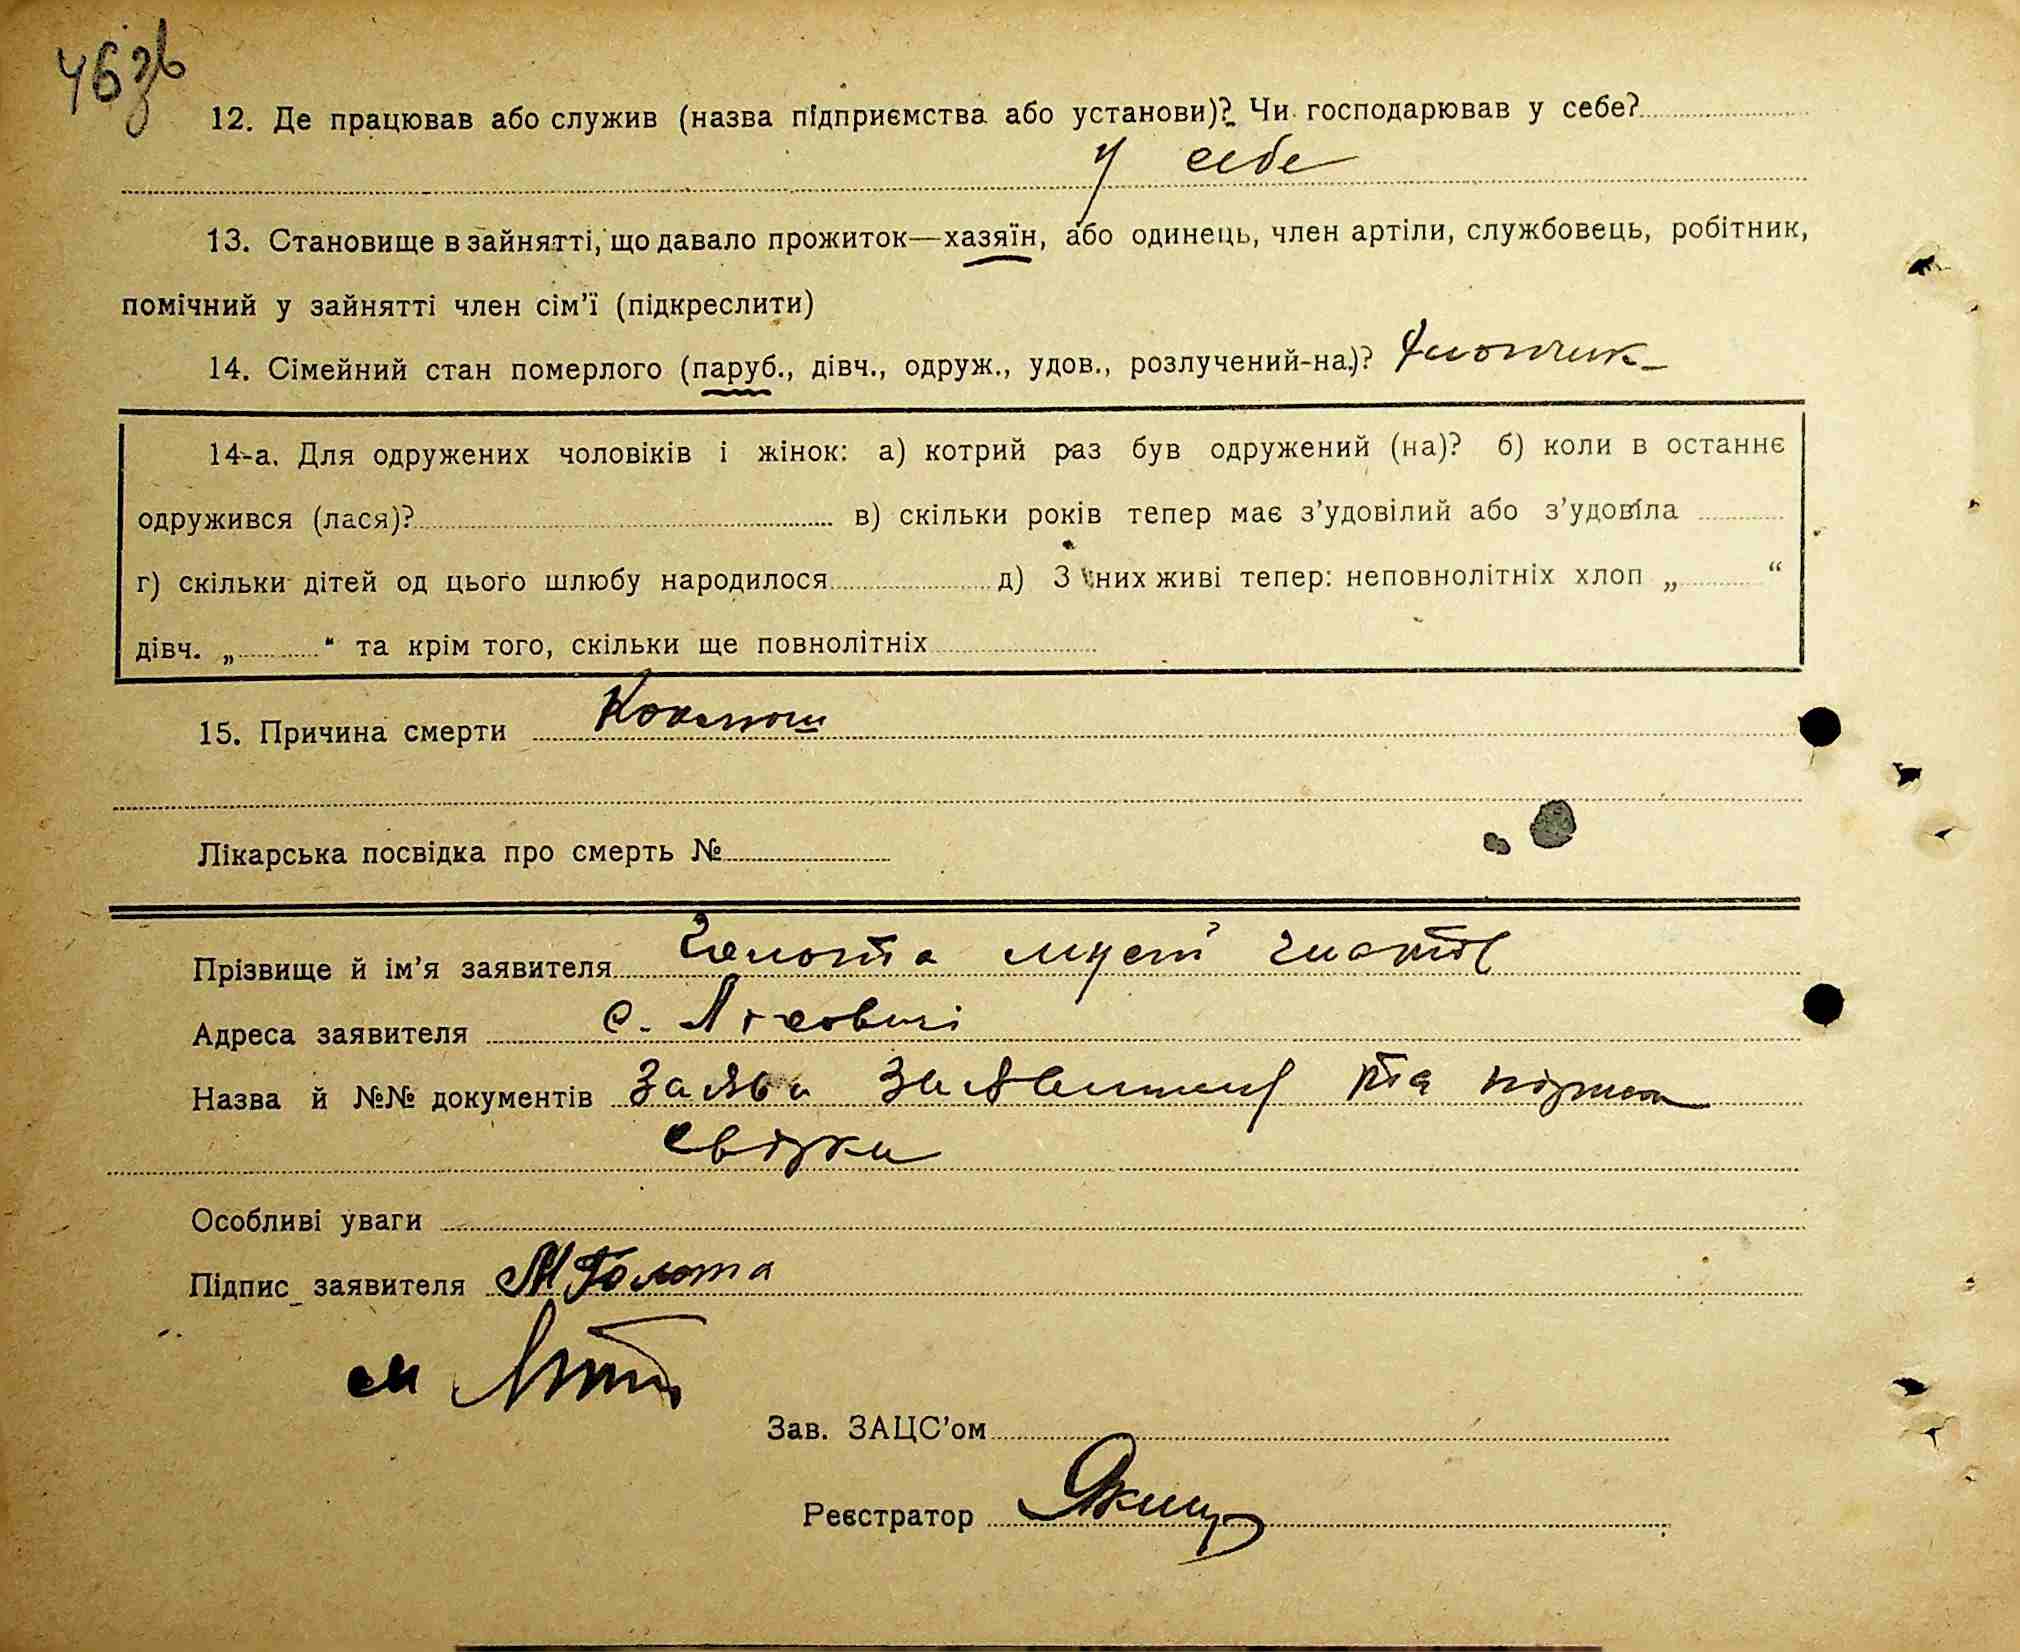 46 зв
12. Де працював або служив (назва підприємства або установи)? Чи господарював у себе?
у себе
13. Становище в зайнятті, що давало прожиток—хазяїн, або одинець, член артіли, службовець, робітник,
помічний у зайнятті член сім’ї (підкреслити)
14. Сімейний стан померлого (паруб., дівч., одруж., удов., розлучений-на.)? Хлопчик
14-а. Для одружених чоловіків і жінок: а) котрий раз був одружений (на)? б) коли в останнє
одружився (лася)? в) скільки років тепер має з’удовілий або з’удовіла
г) скільки дітей од цього шлюбу народилося д) З них живі тепер: неповнолітніх хлоп „ “
дівч. „ “ та крім того, скільки ще повнолітніх
15. Причина смерти Коклюш
Лікарська посвідка про смерть №
Прізвище й ім’я заявителя Голота
Адреса заявителя с.
Назва й №№ документів Заява та
свідки
Особливі уваги
Підпис заявителя М Голота
Зав. ЗАЦС’ом
Реєстратор